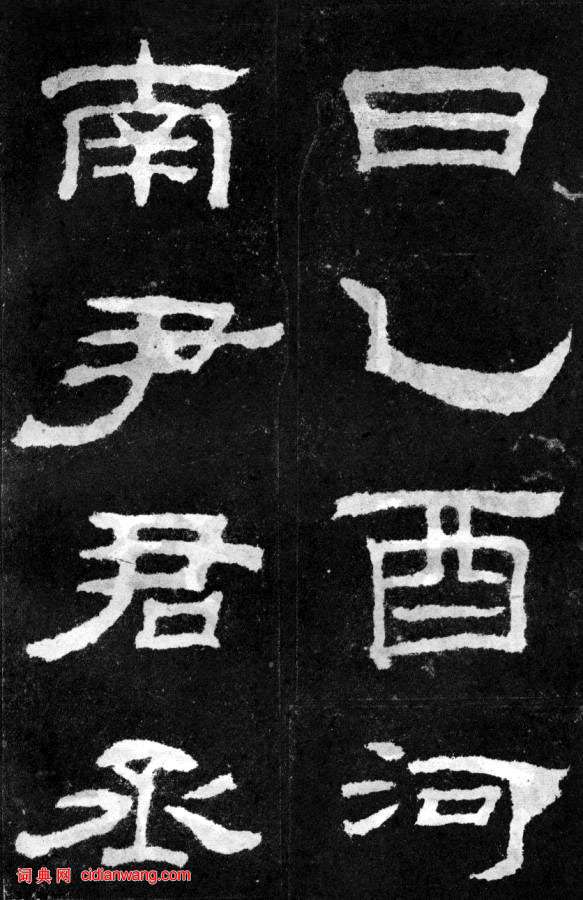 日乙酉河
南尹君丞
词典网 cidianwang.com